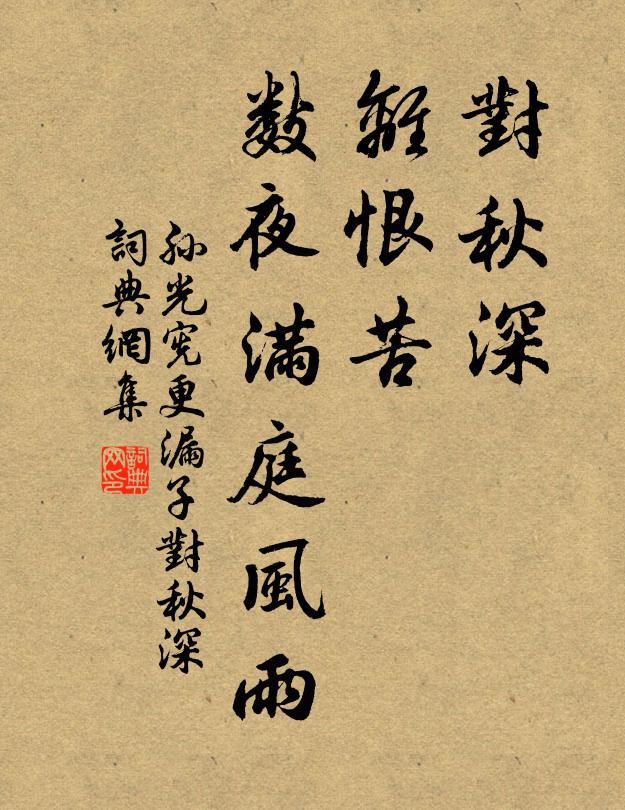 對秋深
離恨苦
数夜滿庭風雨
孫光宪更漏子對秋深
詞典網集
詞典
网印